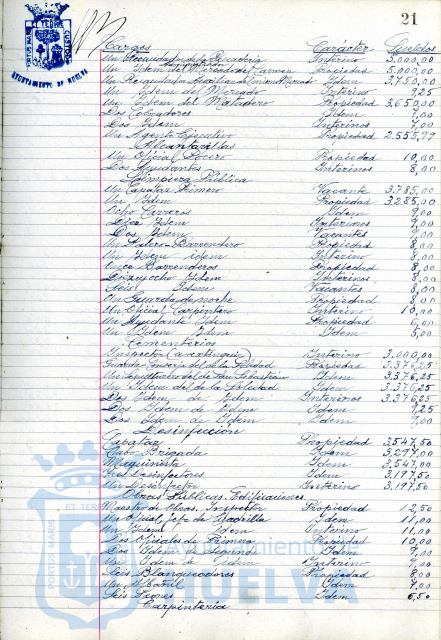 21
AYUNTAMIENTO DE HUELVA
Cargos Carácter Sueldos
Un Recaudador de la Pescadería Interino 5,000,00
Un Idem del Mercado del Carmen Propiedad 5,000,00
Un Recaudador Auxiliar del mismo Mercado Idem 3,750,00
Un Idem del Mercado Interino 9,25
Un Idem del Matadero Propiedad 3,650,00
Dos Cobradores Idem 7,00
Dos Idem Interinos 7,00
Un Agente Ejecutivo Propiedad 2.555,99
Alcantarillas
Un Oficial Pocero Propiedad 10,00
Dos Ayudantes Interinos 8,00
Limpieza Pública
Un Capataz Primero Vacante 3,785,00
Un Idem Propiedad 3,285,00
Ocho Carreros Idem 9,00
Diez Idem Interinos 9,00
Dos Idem Vacantes 9,00
Un Barrendero Propiedad 8,00
Un Idem idem Interino 8,00
Once Barrenderos Propiedad 8,00
Dieziocho Idem Interinos 8,00
Seis Idem Vacantes 8,00
Un Guarda de noche Propiedad 8,00
Un Oficial Carpintero Interino 10,00
Un Ayudante Idem Propiedad 6,00
Un Idem Idem Idem 5,00
Cementerios
Inspector (a extinguir) Interino 3,000,00
Guarda-Conserje del de la Soledad Propiedad 3,376,25
Un del de San Sebastián Idem 3,376,25
Un Idem del de la Soledad Idem 3,376,25
Dos Idem de Idem Interinos 3,376,25
Dos Idem de Idem Idem 9,25
Dos Idem de Idem Idem 7,00
Desinfección
Capataz Propiedad 3,547,50
Cabo Brigada Idem 5,297,00
Maquinista Idem 3,547,00
Tres Desinfectores Idem 3,197,50
Un Desinfector Interino 3,197,50
Obras Públicas, Edificaciones
Maestro de Obras, Inspector Propiedad 12,50
Un Oficial Jefe de Cuadrilla Idem 11,00
Un Idem Interino 11,00
Dos Oficiales de Primera Propiedad 10,00
Dos Idem de Segunda Idem 9,00
Un Idem de Idem Interino 9,00
Seis Blanqueadores Propiedad 8,00
Un Idem 7,00
Seis Peones Idem 6,50
Carpintería